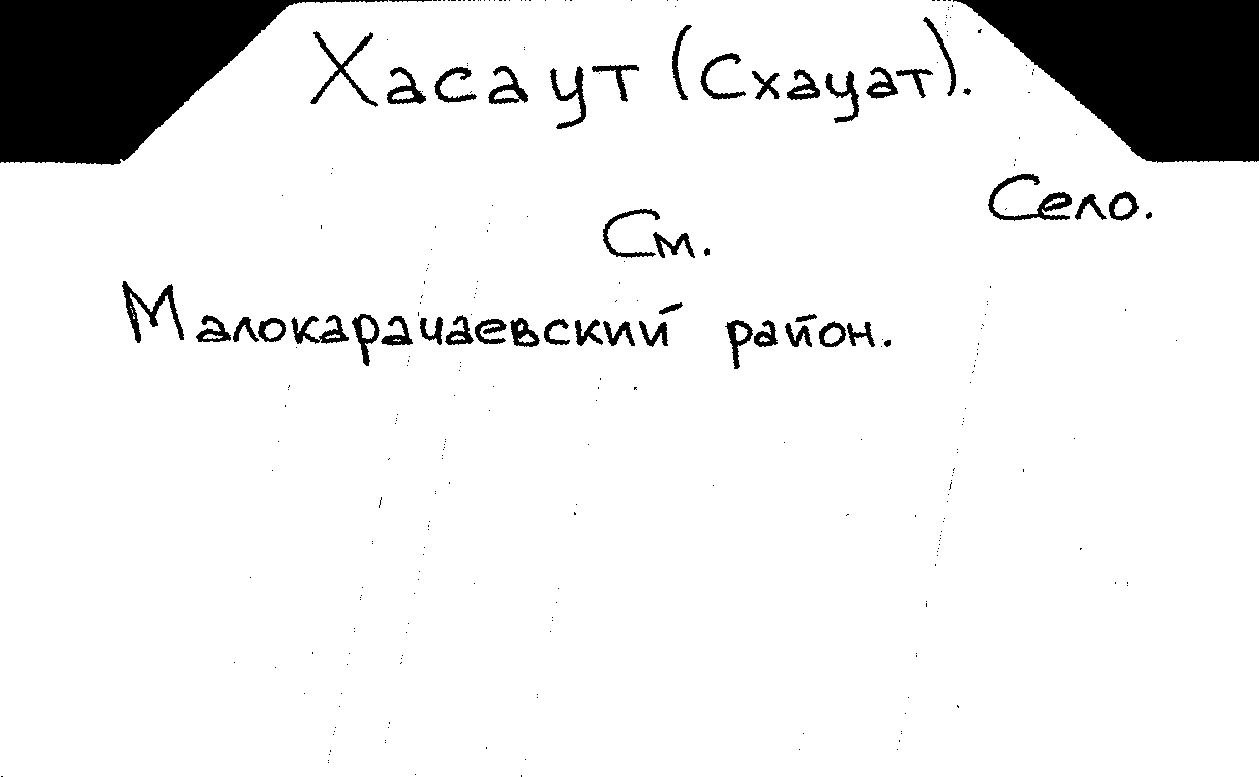 Хасаут (Схауат).
Село.
См.
Малокарачаевский район.